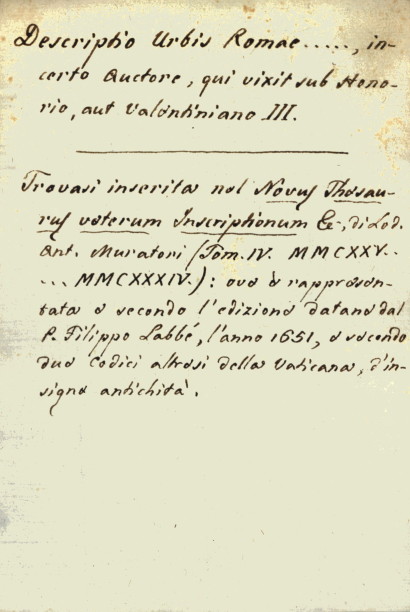 Descriptio Urbis Romae ....., in-
certo Auctore, qui vixit sub Hono-
rio, aut Valentiniano III.
Trovasi inserita nel Novus Thesau-
rus veterum Inscriptionum &, di Lod.
Ant. Muratori (Tom. IV. MMCXXV.
... MMCXXXIV.): ove è rappresen-
tata e secondo l'edizione datane dal
P. Filippo Labbé, l'anno 1651, e secondo
due Codici altresì della Vaticana, d'in-
signe antichità.